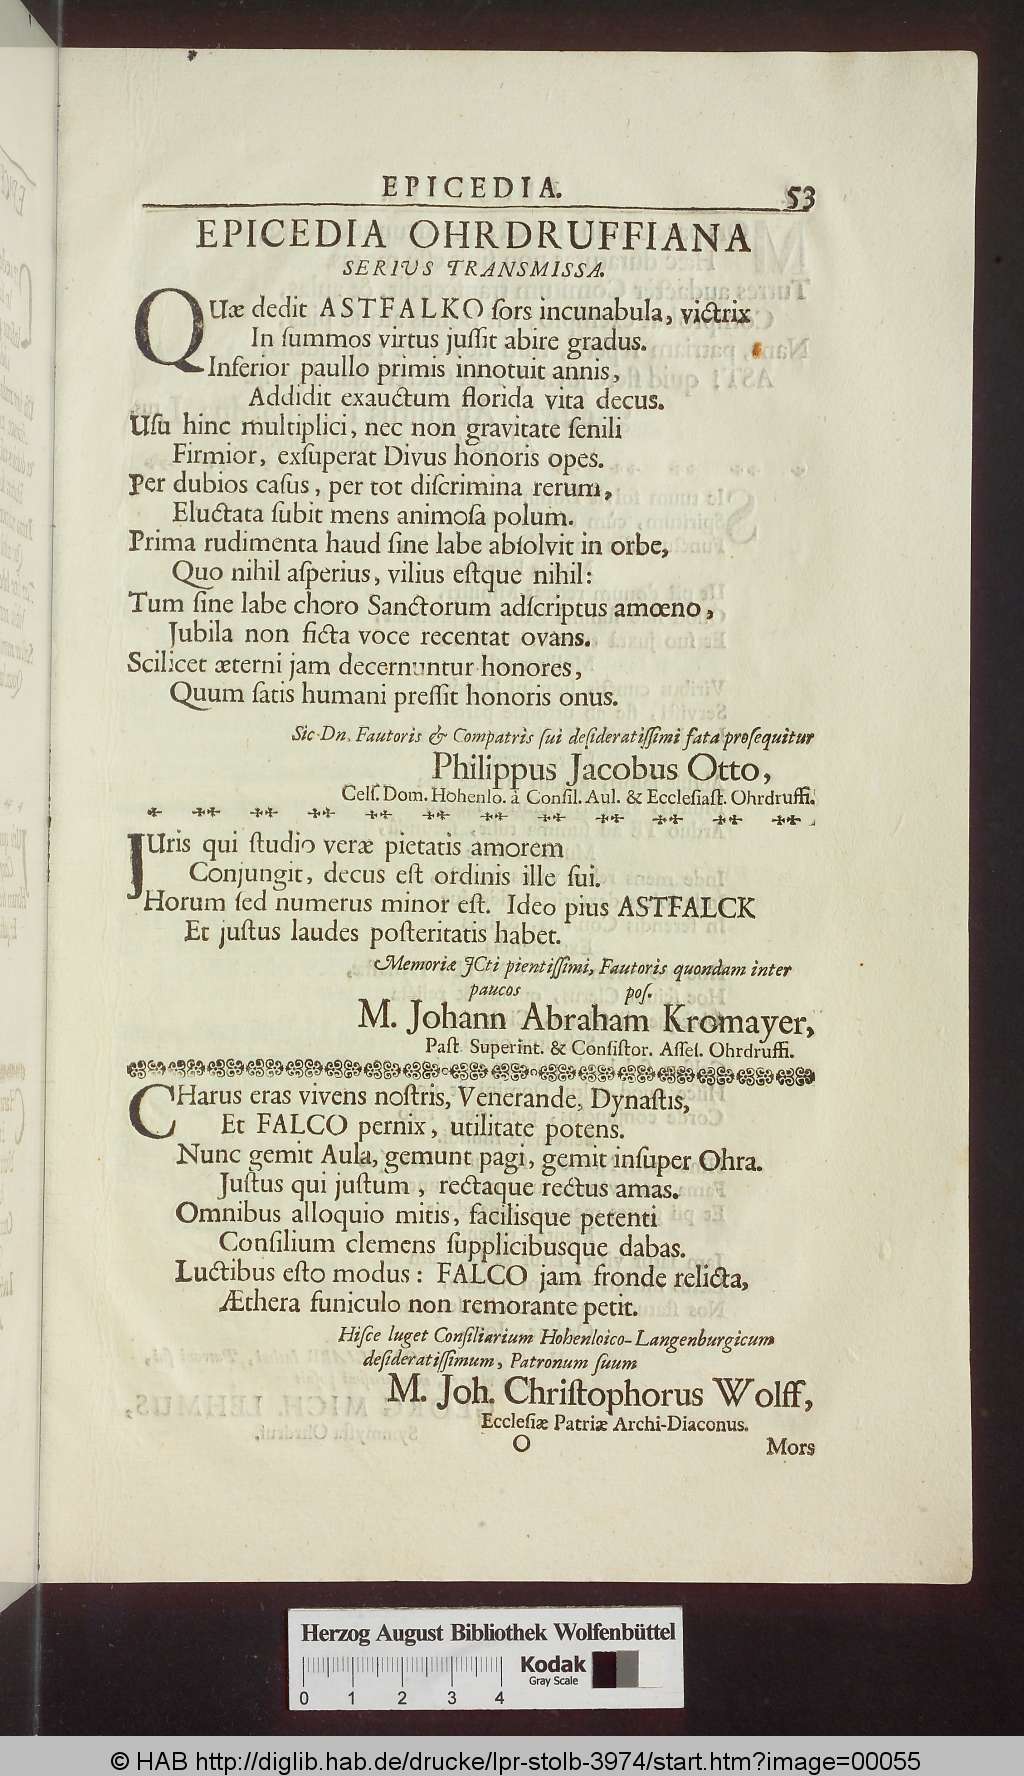 EPICEDIA.
53
EPICEDIA OHRDRUFFIANA
SERIUS TRANSMISSA.
QUæ dedit ASTFALKO ſors incunabula, victrix
In ſummos virtus juſſit abire gradus.
Inferior paullo primis innotuit annis,
Addidit exauctum florida vita decus.
Uſu hinc multiplici, nec non gravitate ſenili
Firmior, exſuperat Divus honoris opes.
Per dubios caſus, per tot diſcrimina rerum,
Eluctata ſubit mens animoſa polum.
Prima rudimenta haud ſine labe abſolvit in orbe,
Quo nihil aſperius, vilius eſtque nihil:
Tum ſine labe choro Sanctorum adſcriptus amœno,
Jubila non ficta voce recentat ovans.
Scilicet æterni jam decernuntur honores,
Quum ſatis humani preſſit honoris onus.
Sic Dn. Fautoris & Compatris ſui deſideratiſſimi fata proſequitur
Philippus Jacobus Otto,
Celſ. Dom. Hohenlo. à Conſil. Aul. & Eccleſiaſt. Ohrdruffi.
JUris qui ſtudio veræ pietatis amorem
Conjungit, decus eſt ordinis ille ſui.
Horum ſed numerus minor eſt. Ideo pius ASTFALCK
Et juſtus laudes poſteritatis habet.
Memoriæ JCti pientiſſimi, Fautoris quondam inter
paucos poſ.
M. Johann Abraham Kromayer,
Paſt. Superint. & Conſiſtor. Aſſeſ. Ohrdruffi.
CHarus eras vivens noſtris, Venerande, Dynaſtis,
Et FALCO pernix, utilitate potens.
Nunc gemit Aula, gemunt pagi, gemit inſuper Ohra.
Juſtus qui juſtum, rectaque rectus amas.
Omnibus alloquio mitis, facilisque petenti
Conſilium clemens ſupplicibusque dabas.
Luctibus eſto modus: FALCO jam fronde relicta,
Æthera funiculo non remorante petit.
Hiſce luget Conſiliarium Hohenloico-Langenburgicum
deſideratiſſimum, Patronum ſuum
M. Joh. Chriſtophorus Wolff,
Eccleſiæ Patriæ Archi-Diaconus.
O
Mors
Herzog August Bibliothek Wolfenbüttel
Kodak
Gray Scale
0 1 2 3 4
© HAB http://diglib.hab.de/drucke/lpr-stolb-3974/start.htm?image=00055